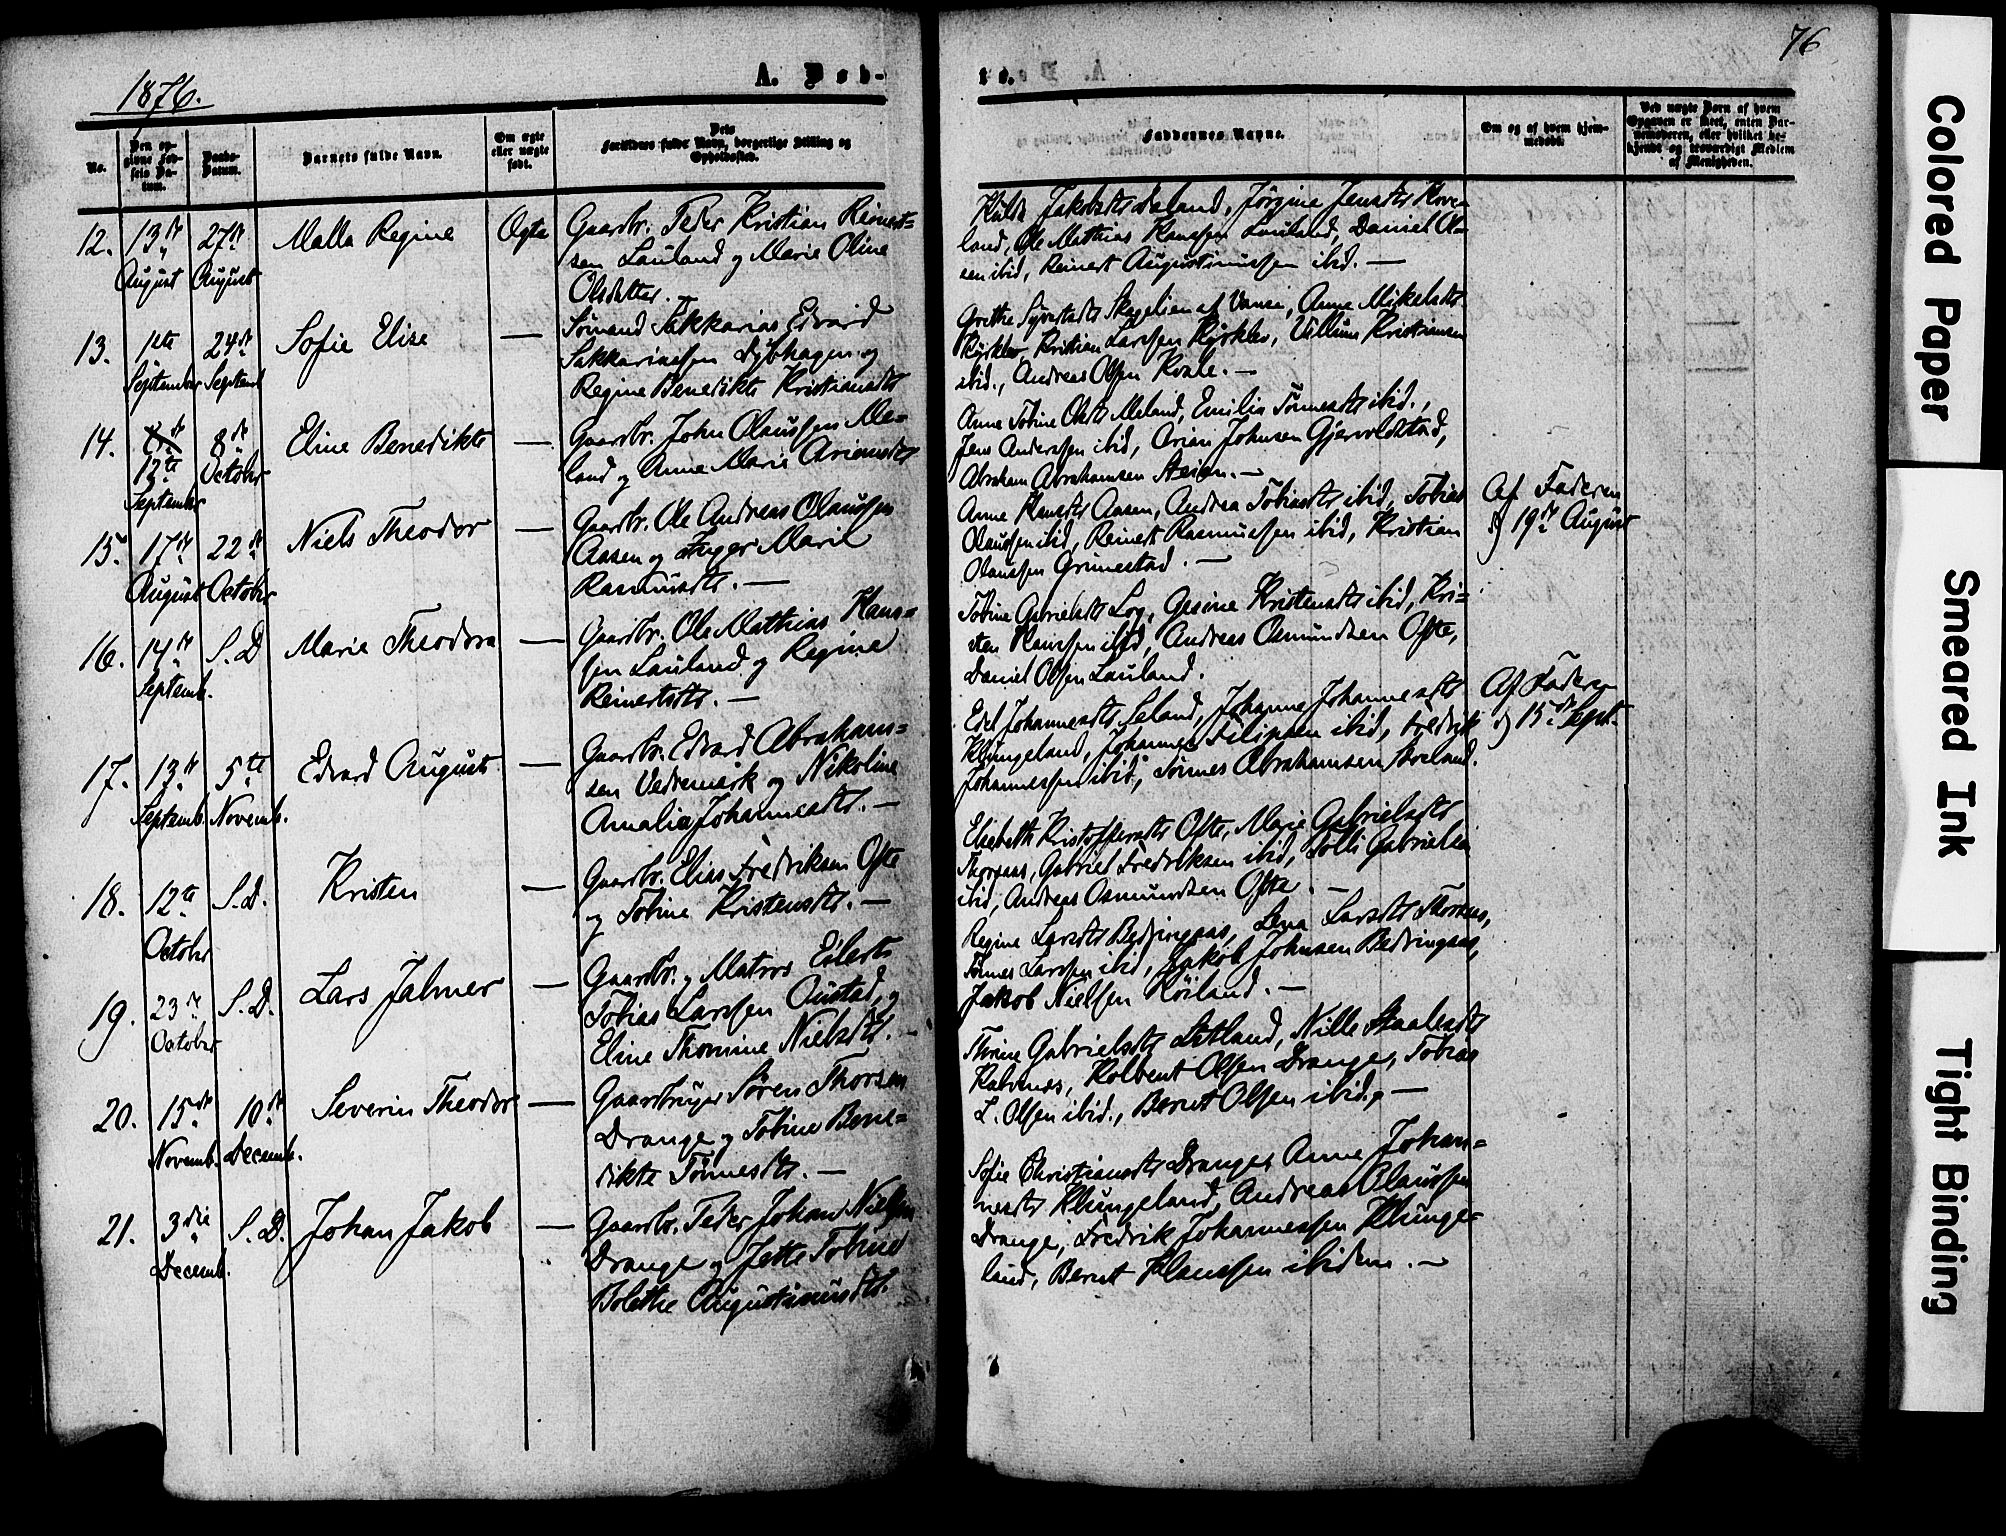 1876.
A. Døb-
No.
Den op-
givne Fød-
sels Da-
tum.
Daabs-
Datum.
Barnets fulde Navn.
Om ægte
eller uægte
født.
Dets
Forældres fulde Navn, borgerlige Stilling og
Opholdssted.
12.
13de
August
27de
August
Malla Regine
Ægte
Gaardbr. Peder Kristian Reinert=
sen Lauland og Marie Oline
Olsdatter.
13.
1ste
September
24de
Septemb
Sofie Elise
—
Sømand Sakkarias Edvard
Sakkariassen Dybhagen og
Regine Benedikte Kristiansdtr
14.
12te
September
8de
October
Eline Benedikte
—
Gaardbr. John Olaussen Me=
land og Anne Marie Ariansdtr
15.
17de
August
22de
October
Niels Theodor
—
Gaardbr. Ole Andreas Olaussen
Aasen og Inger Marie
Rasmusdtr. —
16.
14de
Septemb.
S. D
Marie Theodora
—
Gaardbr. Ole Mathias Hans=
sen Lauland og Regine
Reinertsdtr. —
17.
13de
Septemb.
5te
Novemb.
Edvard August
—
Gaardbr. Edvard Abraham=
sen Vedremark og Nikoline
Amalia Johannesdtr. —
18.
12te
October
S. D.
Kristen
—
Gaardbr. Elias Fredriksen Ofte
og Tobine Kristensdtr. —
19.
23de
October
S. D.
Lars Jalmer
—
Gaardbr. og Matros Eilert
Tobias Larssen Austad, og
Eline Thomine Nielsdtr. —
20.
15de
Novemb.
10de
Decemb.
Severin Theodor
—
Gaardbruger Søren Thorsen
Drange og Tobine Bene=
dikte Tønnesdtr. —
21.
3die
Decemb.
S. D.
Johan Jakob
—
Gaardbr. Peder Johan Nielsen
Drange og Jette Tobine
Bolethe Augustinusdtr.
76
te.
Faddernes Navne.
Om og af hvem hjem-
medøbt.
Ved uægte Børn af hvem
Opgaven er skeet, enten Jor-
demoderen, eller hvilket be-
kjendt og troværdigt Medlem
af Menigheden.
Jakobsdtr Leland, Jørgine Jensdtr Hove=
land, Ole Mathias Hanssen Lauland, Daniel Ol=
sen ibid, Reinert Augustinussen ibid. —
Grethe Syvertsdtr Skegelien af Vanse, Anne Mikelsdtr
Kjørklev, Kristian Larssen Kjørklev, Villum Kristiansen
ibid., Andreas Olsen Kvale. —
Anne Tobine Olsdtr Meland, Emilie Tønnesdtr ibid.,
Jens Anderssen ibid, Arian Johnsen Gjervoldstad,
Abraham Abrahamsen Steien. —
Anne Hansdtr Aasen, Andrea Tobiasdtr ibid, Tobias
Olaussen ibid, Reinert Rasmussen ibid, Kristian
Olaussen Grimestad. —
Af Faderen
d 19de August
Tobine Gabrielsdtr Log, Gesine Kristensdtr ibid, Kri=
sten Hanssen ibid, Andreas Osmundsen Ofte,
Daniel Olsen Lauland.
Edel Johannesdtr Leland, Johanne Johannesdtr
Klungeland, Johannes Filipsen ibid, Fredrik
Johannessen ibid, Tønnes Abrahamsen
Af Faderen
d 15de Sept.
Elisebeth Kristoffersdtr Ofte, Marie Gabrielsdtr
Thorpaas, Gabriel Fredriksen ibid, Tolli Gabrielsen
ibid, Andreas Osmundsen Ofte. —
Regine Larsdtr Bedringaas, Lena Larsdtr
Tønnes Larssen ibid, Jakob Johnsen Bedringaas,
Jakob Nielsen Røiland. —
Thrine Gabrielsdtr Litland, Nille Staalesdtr
Kalvenes, Kolbent Olsen Drange, Tobias
L. Olsen ibid., Bernt Olsen ibid., —
Sofie Christiansdtr Drange, Anne Johan=
nesdtr Klungeland, Andreas Olaussen
Drange, Fredrik Johannessen Klunge=
land, Bernt Hanssen ibidem. —
Colored Paper
Smeared Ink
Tight Binding